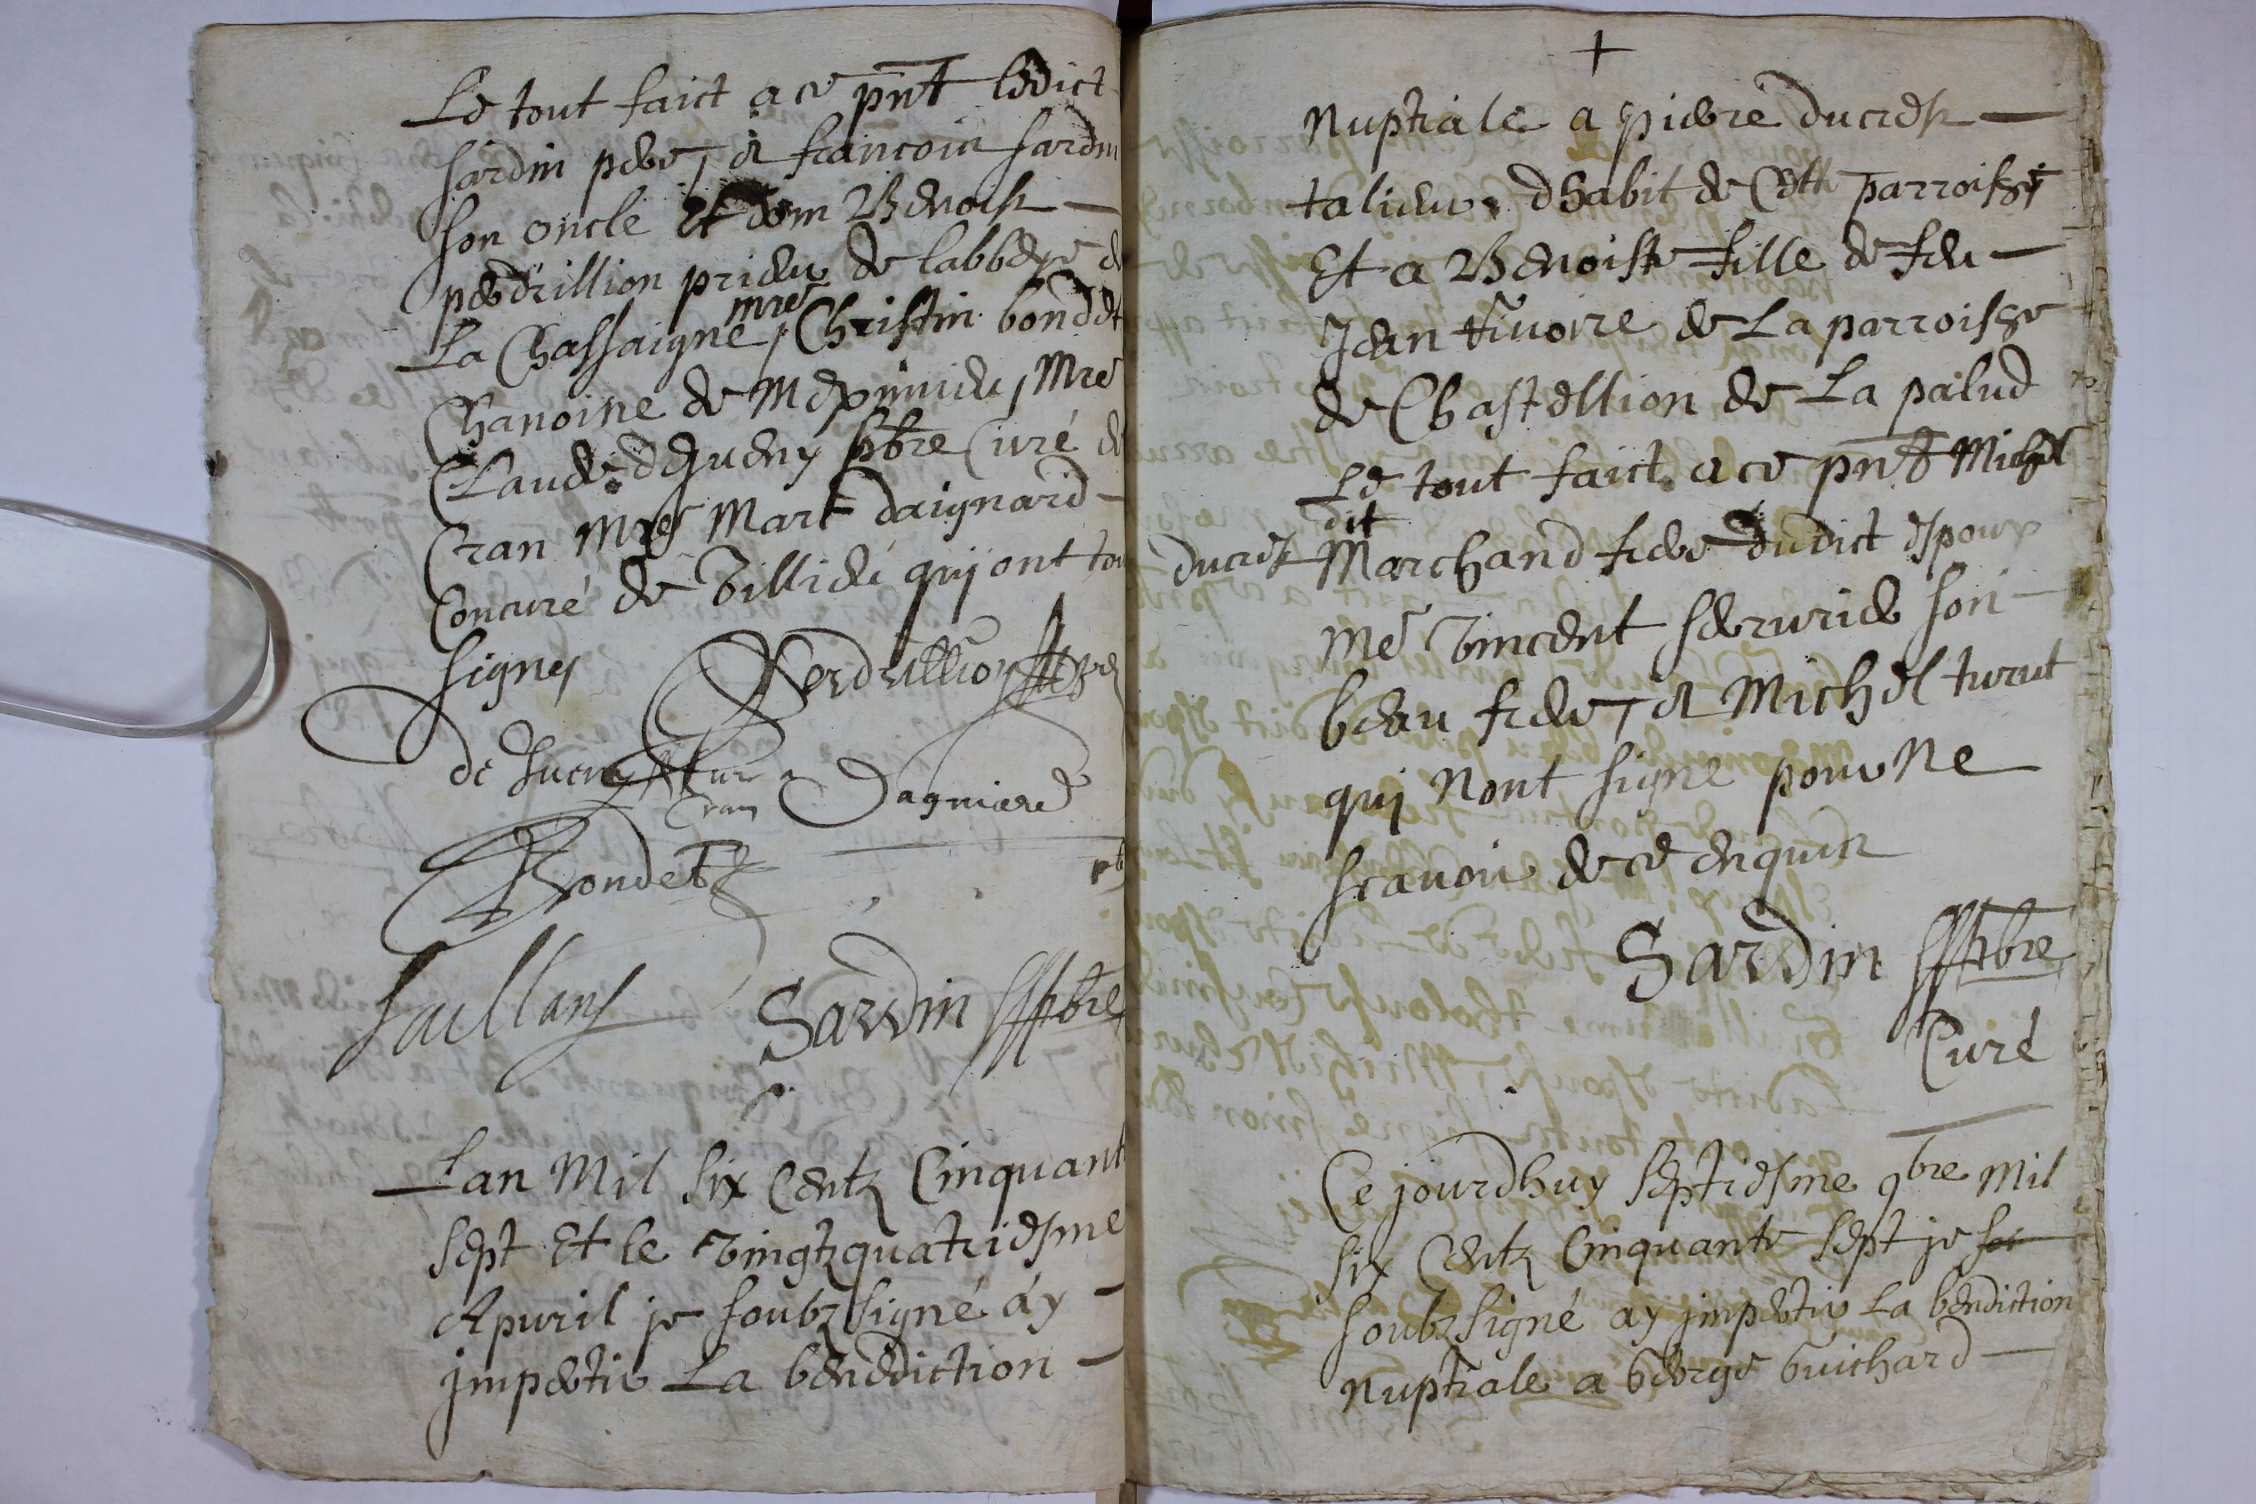 Le tout faict a ce pnt ledict
sardin pere, et francois sardin
son oncle Et dom Benoist
perdrillion prieur de labbeye de
La Chassaigne, mre Christin bondet
Chanoine de Meximieu, Mre
Claude desueny pbre Curé de
Cran Mre Mark daignard
Concuré de Villieu quj ont tou
signes
Perdrillion
de Cran Dagniere
Bondet
saillans Sardin pbre
Lan Mil six Centz Cinquant
sept Et le vingtquatriesme
Apuril je soubzsigné ay
jmpertir La benediction
+
Nuptiale a pierre ducrest
talieur dhabit de Cette parroisse
Et a Benoiste fille de feu
Jean de La parroisse
de Chastellion de La palud
Le tout faict a ce pnt Michel
dit
ducrest Marchand frere dudict espoux
me vincent serrurier son
beau frere, et Michel turut
quj nont signe pour Ne
scauoir de ce enquis
Sardin pbre
Curé
Ce jourdhuy septiesme 9bre Mil
six Centz Cinquante sept je
soubzsigné ay jmpertir La bendiction
Nuptiale a George Guichard